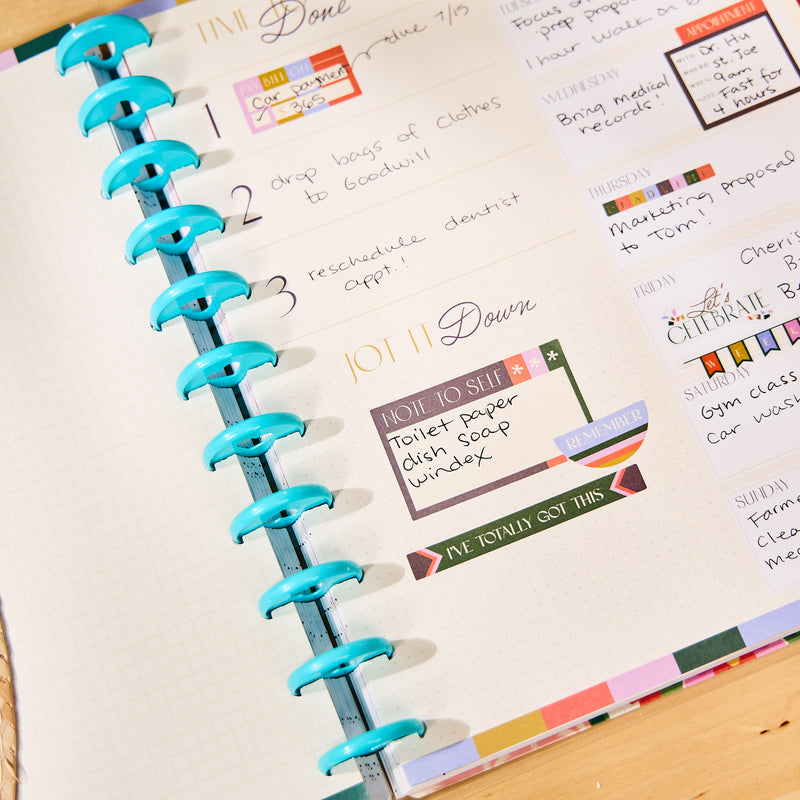 TIME Done
PAY BILL OH
Car payment
$ 365
due 7/15
1
2
drop bags of clothes
to Goodwill
3
reschedule dentist
appt.!
JOT IT Down
NOTE TO SELF
Toilet paper
dish soap
windex
REMEMBER
I'VE TOTALLY GOT THIS
TUESDAY
Focus on
prep propos
1 hour walk on
WEDNESDAY
Bring medical
records!
APPOINTMENT
WITH: Dr. Hu
WHERE: St. Joe
WHEN: 9am
NOTE: Fast for
4 hours
THURSDAY
DEADLINE
Marketing proposal
to Tom!
FRIDAY
Cheri's
Let's
CELEBRATE
WEEK
SATURDAY
Gym class
Car wash
SUNDAY
Farme
Clea
me